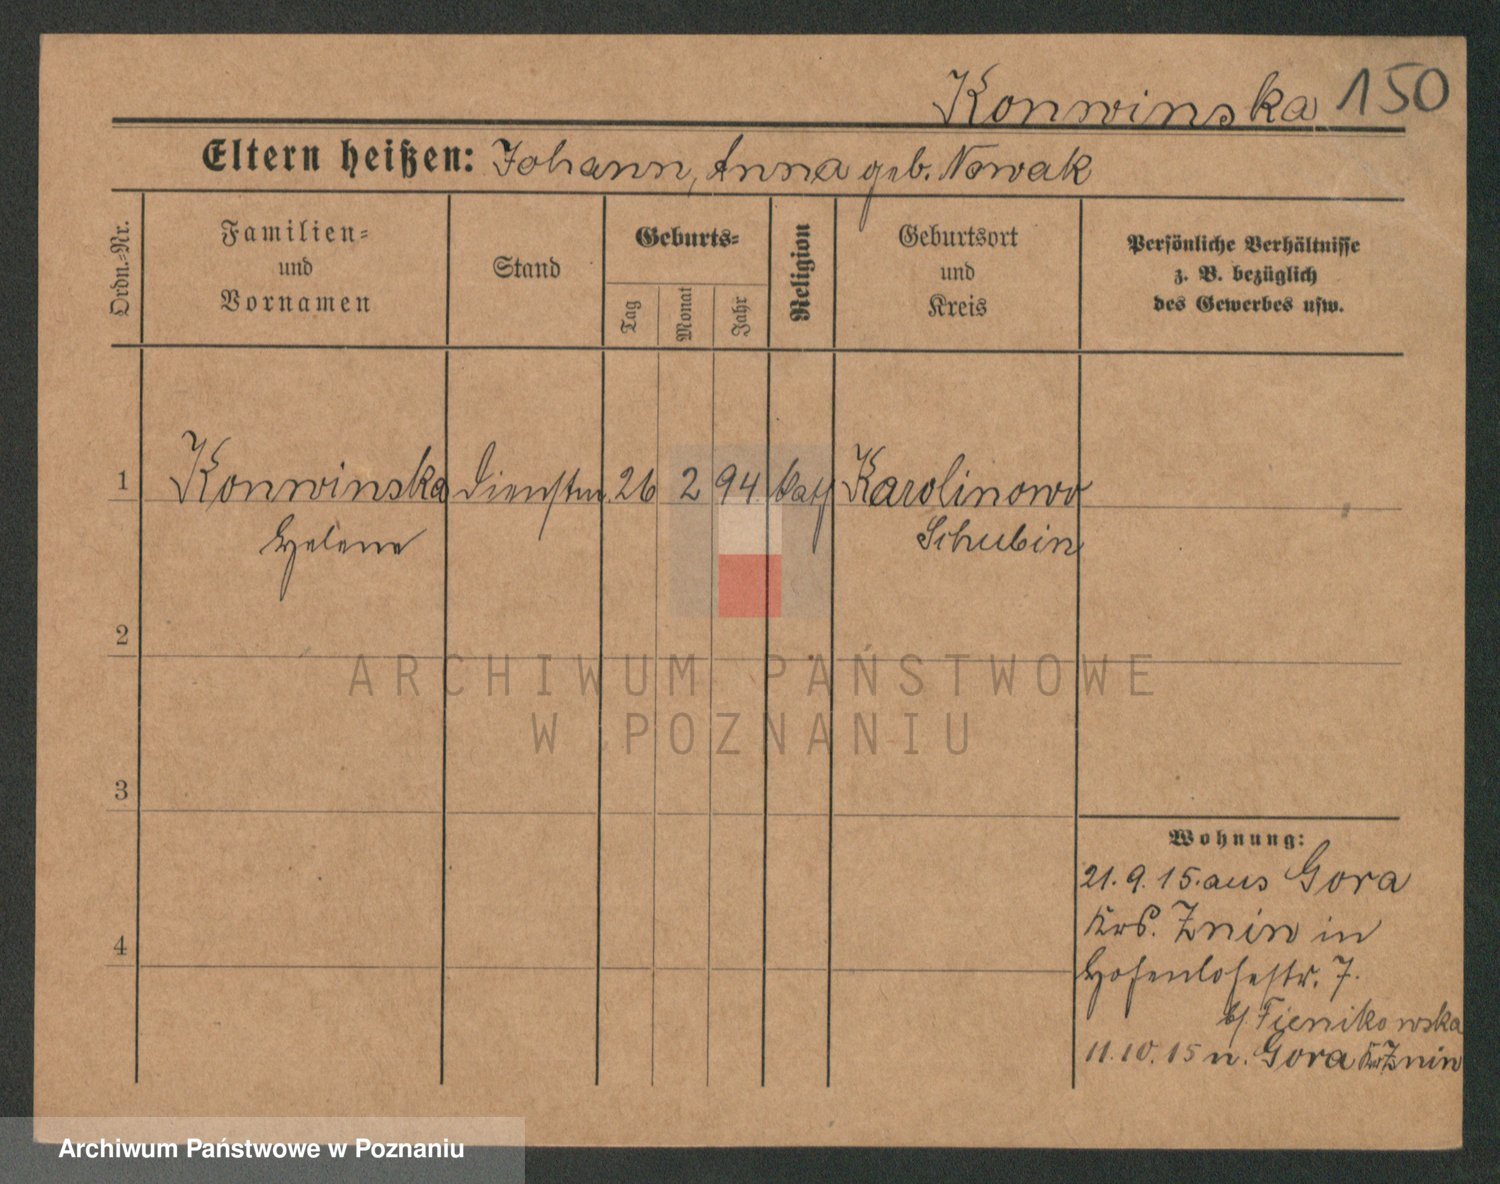 Konwinska 150
Eltern heißen: Johann, Anna geb. Nowak
Ordn.-Nr.
Familien-
und
Vornamen
Stand
Geburts-
Tag
Monat
Jahr
Religion
Geburtsort
und
Kreis
Persönliche Verhältnisse
z. B. bezüglich
des Gewerbes usw.
1 Konwinska Dienstm. 26 2 94 kath Karolinowo
Helene Schubin
2
ARCHIWUM PAŃSTWOWE
W POZNANIU
3
Wohnung:
21.9.15. aus Gora
Krs. Znin in
Hohenlohestr. 7.
b/ Fienikowska
4
11.10.15 n. Gora Krs Znin
Archiwum Państwowe w Poznaniu